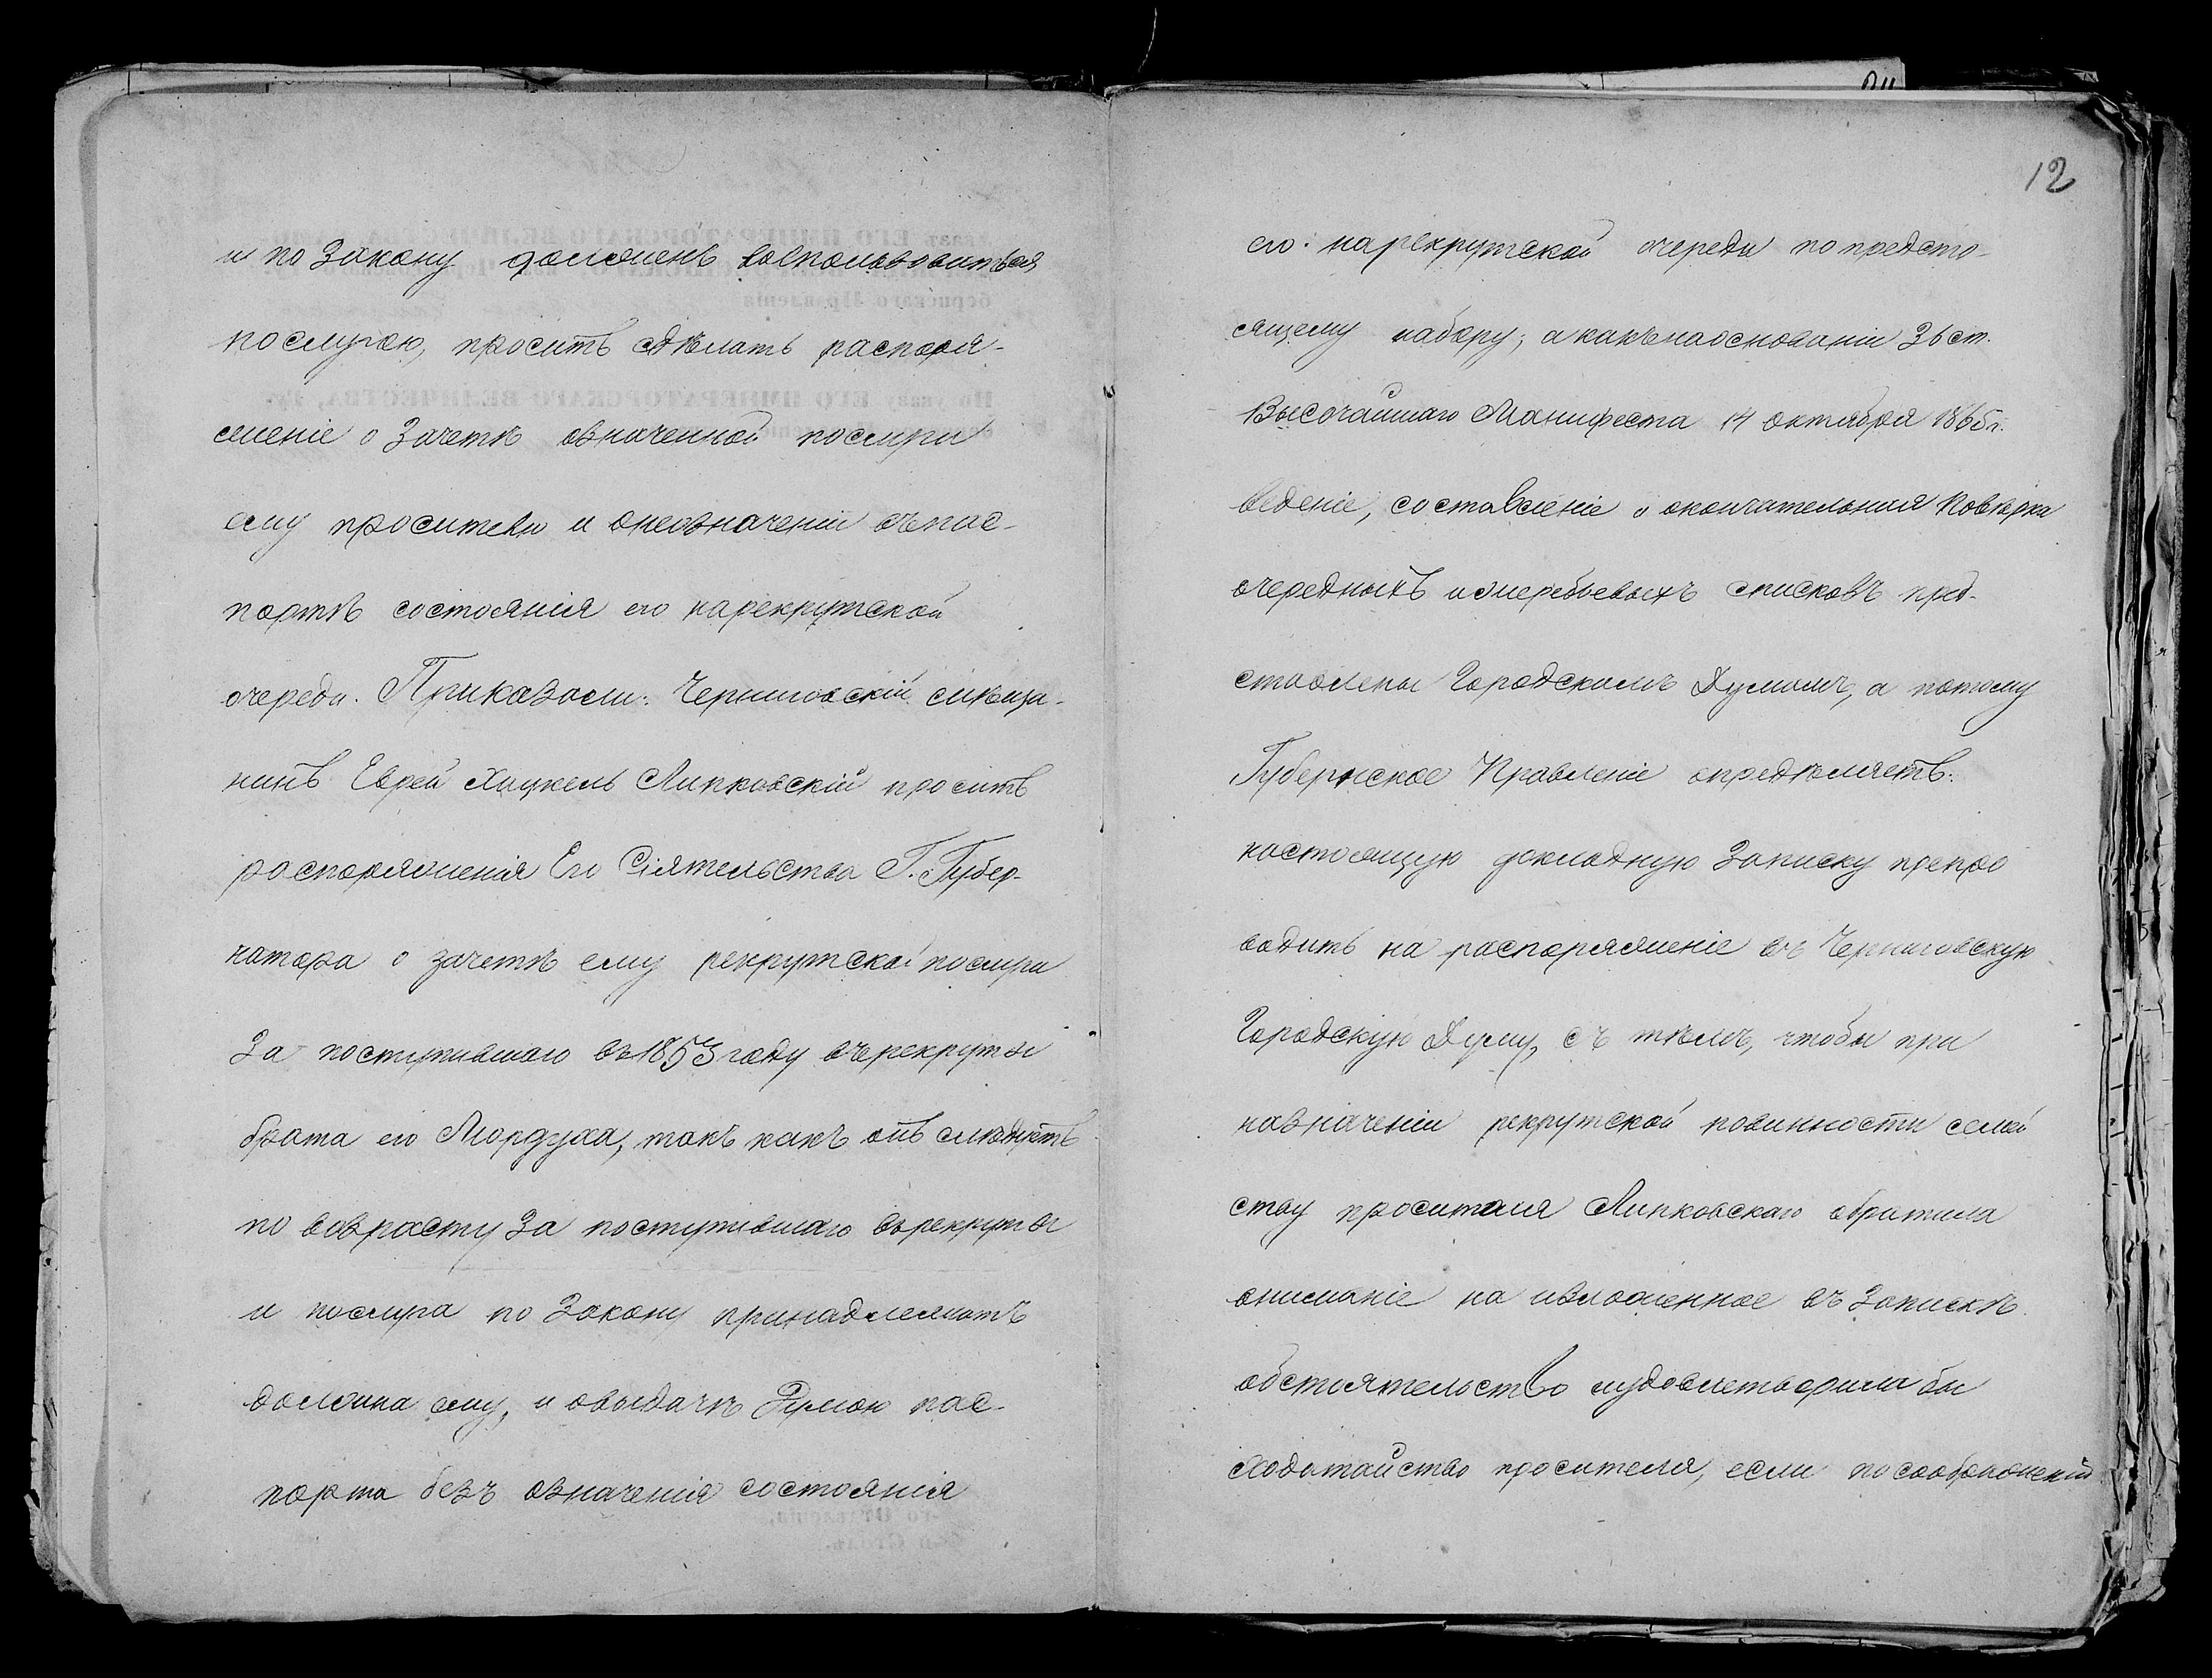 и по Закону долженъ воспользоваться
послугою, проситъ сдѣлать распоря-
женіе о Зачетѣ означенной послуги
ему просителю и онеозначеніи въпас-
портѣ состоянія его нарекрутской
очереди. Приказали: Черниговскій мѣща-
нинъ Еврей Хацкель Липковскій проситъ
распоряженія Его Сіятельства Г. Губер-
натора о зачетѣ ему рекрутской послуги
За поступившаго въ 1853 году върекруты
брата его Мордуха, такъ какъ онъ слѣдуетъ
по возрасту За поступившаго въ рекруты
и послуга по Закону принадлежать
должна ему, и овыдачѣ Думою пас-
порта безъ означенія состоянія
12
его нарекрутской очереди по предсто-
ящему набору; а какънаоснованіи 36 ст.
Высочайшаго Манифеста 14 октября 1865 г.
веденіе, составленіе и окончательная Повѣрка
очередныхъ ижеребьевыхъ списковъ пред-
ставлены Городскимъ Думамъ, а потому
Губернское Правленіе опредѣляетъ:
настоящую докладную Записку препро
водить на распоряженіе въ Черниговскую
Городскую Думу, съ тѣмъ, чтобы при
назначеніи рекрутской повинности семей
ству просителя Липковскаго обратила
вниманіе на изложенное въ Запискѣ
обстоятельство иудовлетворила бы
ходатайство просителя, если по соображеніи